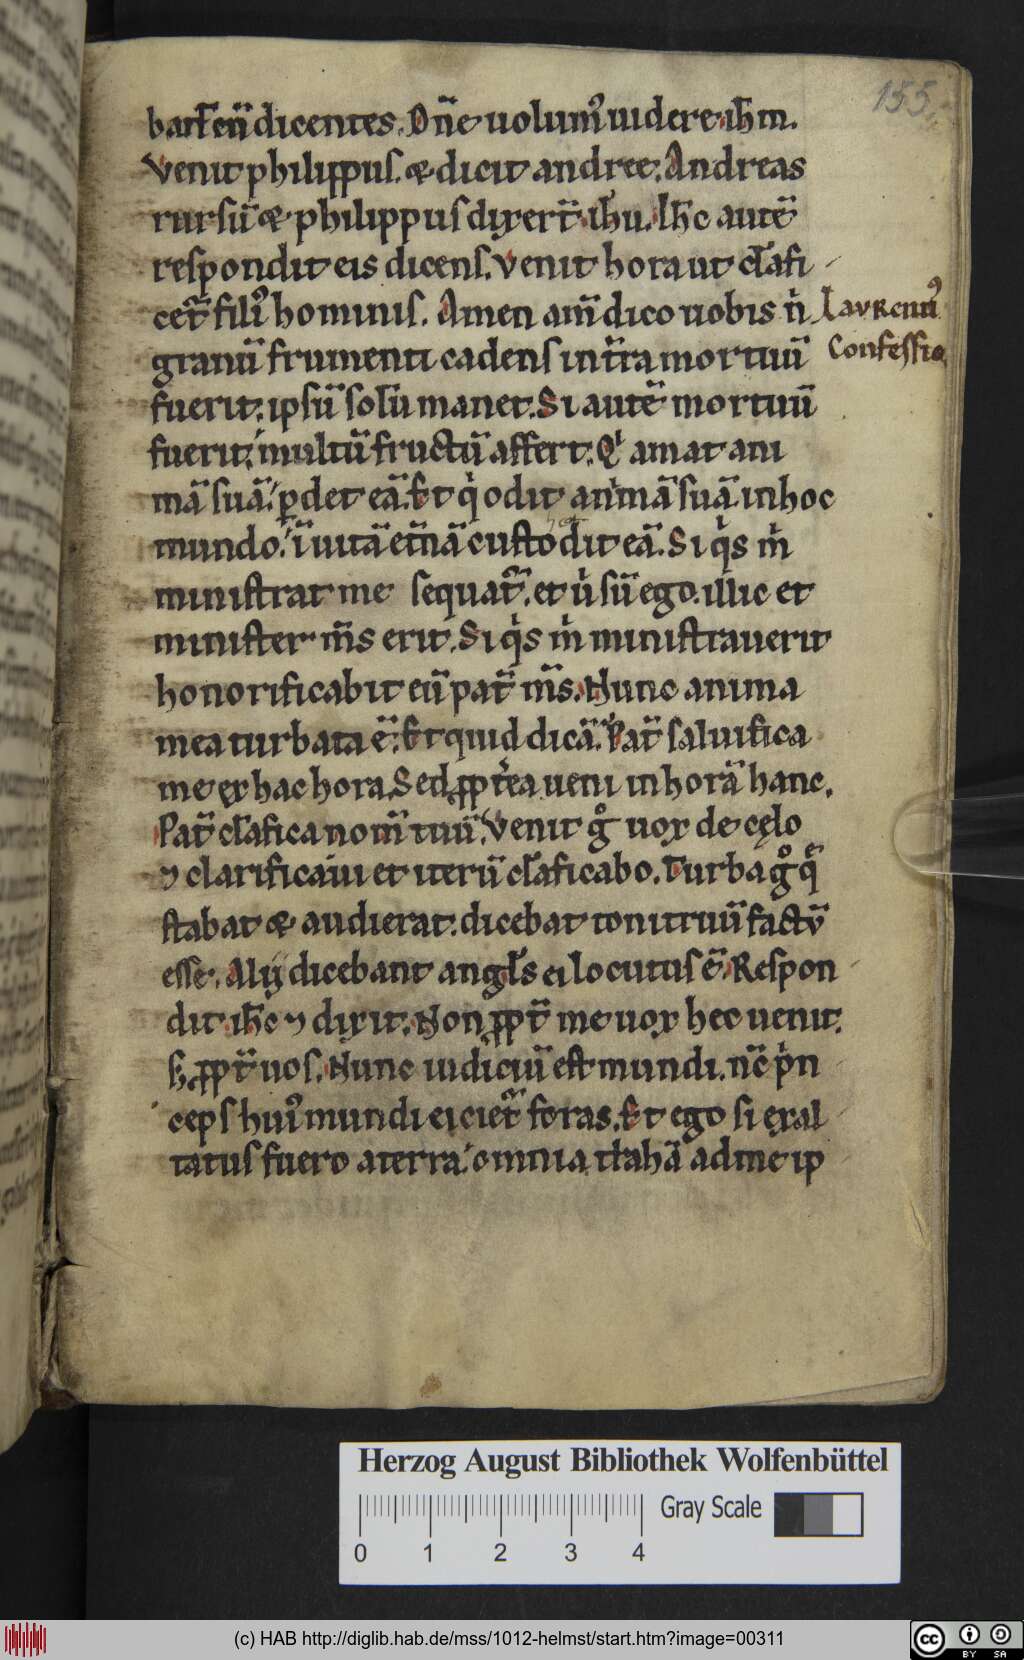 155.
bant eū dicentes. Dn̄e uolum᷒ uidere ih̄m.
Venit philippus. & dicit andree. Andreas
rursū & philippus dixert̄ ih̄u. Ih̄c autē
respondit eis dicens. Venit hora ut cl̄afi
cet̄ fili᷒ hominis. Amen am̄ dico uobis n̄
Laurentii
granū frumenti cadens in t̄ra mortuū
Confessio
fuerit: ipsū solū manet. Si autē mortuū
fuerit; multū fructū affert. Qⁱ amat ani
mā suā, ꝑdet eā. Et qⁱ odit animā suā in hoc
mundo. ī uitā et̄nā custodit eā. Si qⁱs mⁱ
ministrat me sequat̄. et uⁱ sū ego. illic et
minister m̄s erit. Si qⁱs mⁱ ministrauerit
honorificabit eū pat̄ m̄s. Nunc anima
mea turbata ē. Et quid dicā. Pat̄ saluifica
me ex hac hora. Sed ꝓpt̄ea ueni in horā hanc.
Pat̄ cl̄afica nom̄ tuū. Venit gͦ uox de cęlo
⁊ clarificaui et iterū cl̄aficabo. Turba gͦ q̄
stabat & audierat. dicebat tonitruū factū
esse. Alij dicebant angl̄s ei locutus ē. Respon
dit ih̄c ⁊ dixit. Non ꝓpt̄ me uox hec uenit.
s; ꝓpt̄ uos. Nunc iudiciū est mundi. nc̄ pⁱn
ceps hui᷒ mundi eiciet̄ foras. Et ego si exal
tatus fuero a terra. omnia trahā ad me ip
Herzog August Bibliothek Wolfenbüttel
0 1 2 3 4
Gray Scale
(c) HAB http://diglib.hab.de/mss/1012-helmst/start.htm?image=00311
cc BY SA